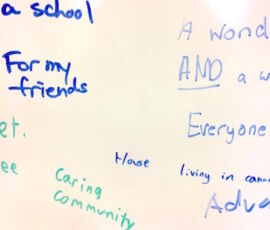 a school
For my
friends
et.
ee
Caring
community
House
A wond
AND a w
Everyone
living in
Adve